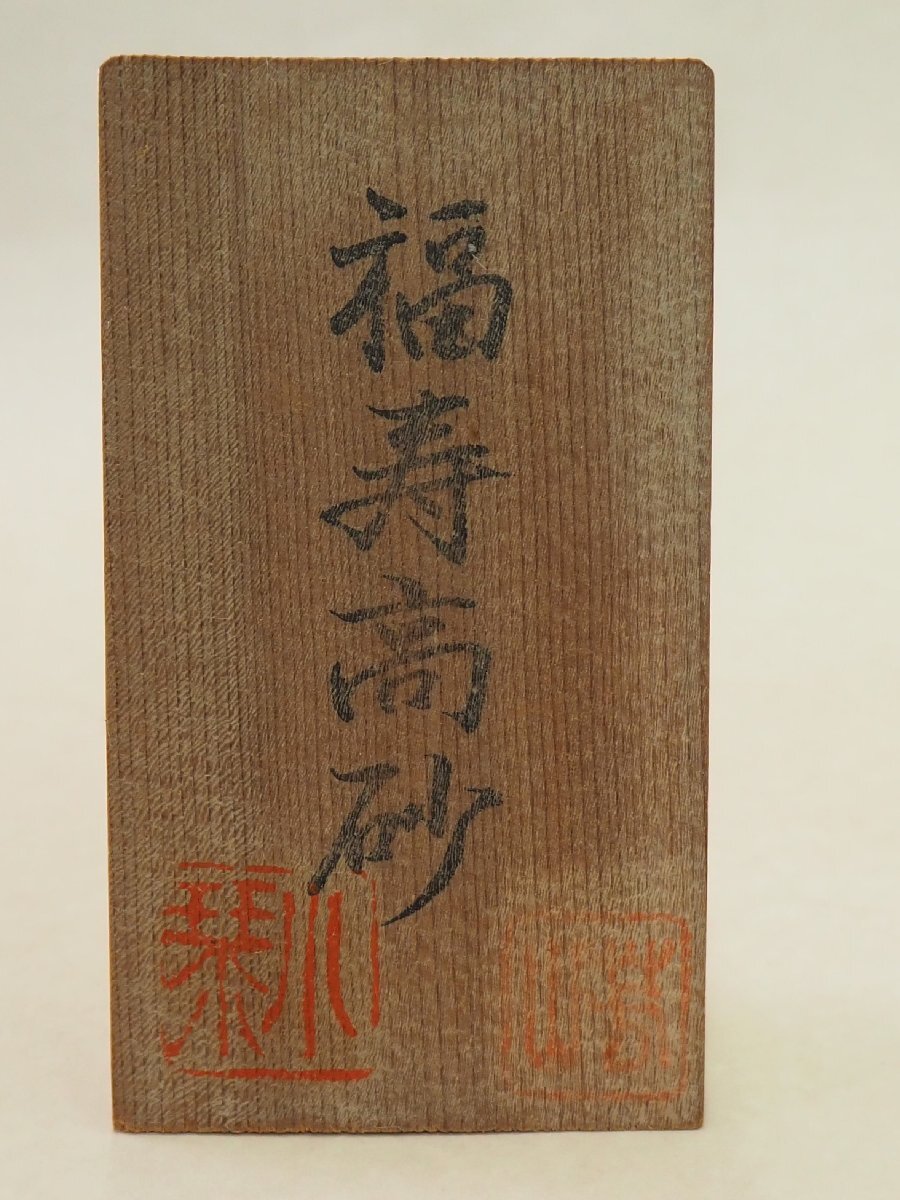 福寿高砂